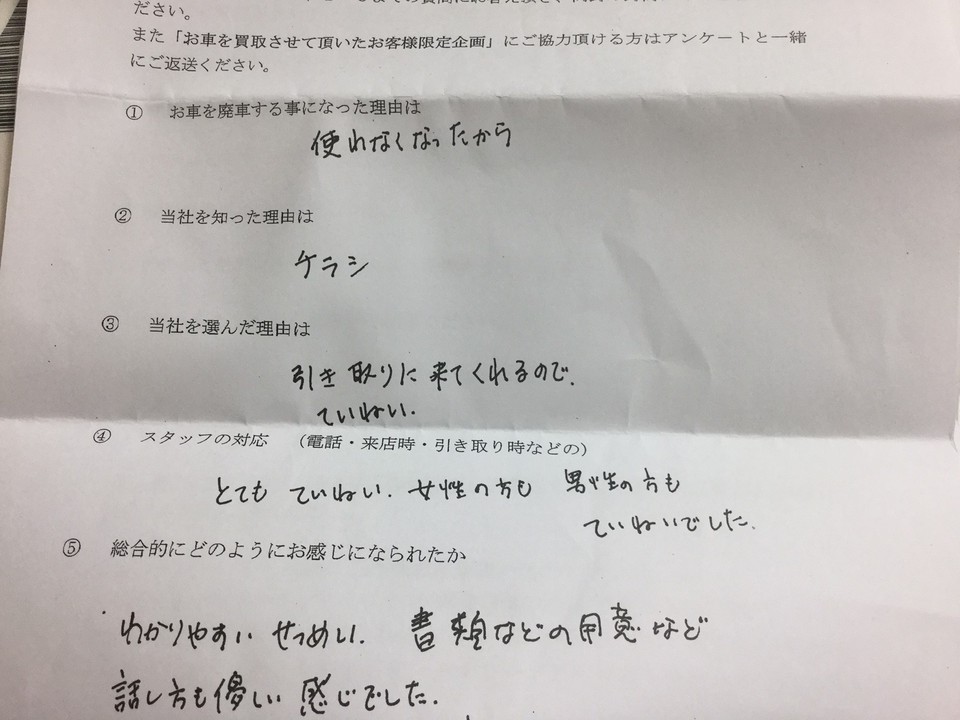 ださい。
また「お車を買取させて頂いたお客様限定企画」にご協力頂ける方はアンケートと一緒
にご返送ください。
① お車を廃車する事になった理由は
使れなくなったから
② 当社を知った理由は
チラシ
③ 当社を選んだ理由は
引き取りに来てくれるので、
ていねい.
④ スタッフの対応 (電話・来店時・引き取り時などの)
とても ていねい. 女性の方も 男性の方も
ていねいでした.
⑤ 総合的にどのようにお感じになられたか
わかりやすい せつめい. 書類などの用意など
話し方も優しい 感じでした.